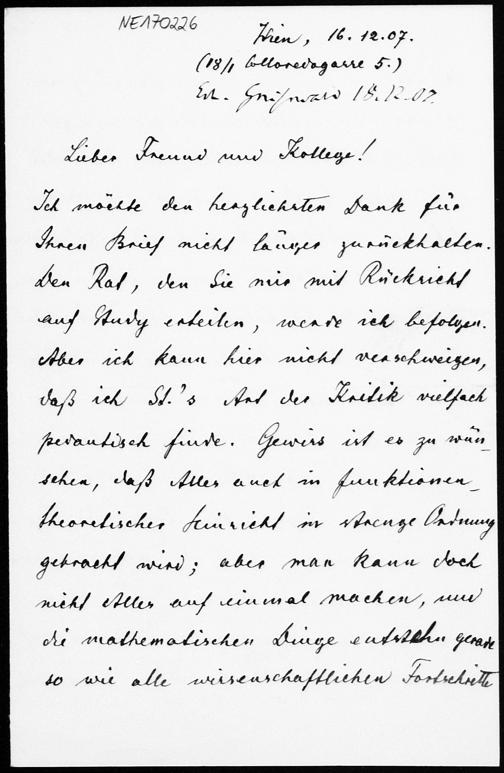 NE170226
Wien, 16. 12. 07.
(18/1 Colloredogasse 5.)
18.12.07.
Lieber Freund und Kollege!
Ich möchte den herzlichsten Dank für
Ihren Brief nicht länger zurückhalten.
Den Rat, den Sie mir mit Rücksicht
auf Study erteilen, werde ich befolgen.
Aber ich kann hier nicht verschweigen,
daß ich St.'s Art der Kritik vielfach
pedantisch finde. Gewiss ist es zu wün-
schen, daß Alles auch in funktionen-
theoretischer Hinsicht in strenge Ordnung
gebracht wird; aber man kann doch
nicht Alles auf einmal machen, und
die mathematischen Dinge entstehn gerade
so wie alle wissenschaftlichen Fortschritte